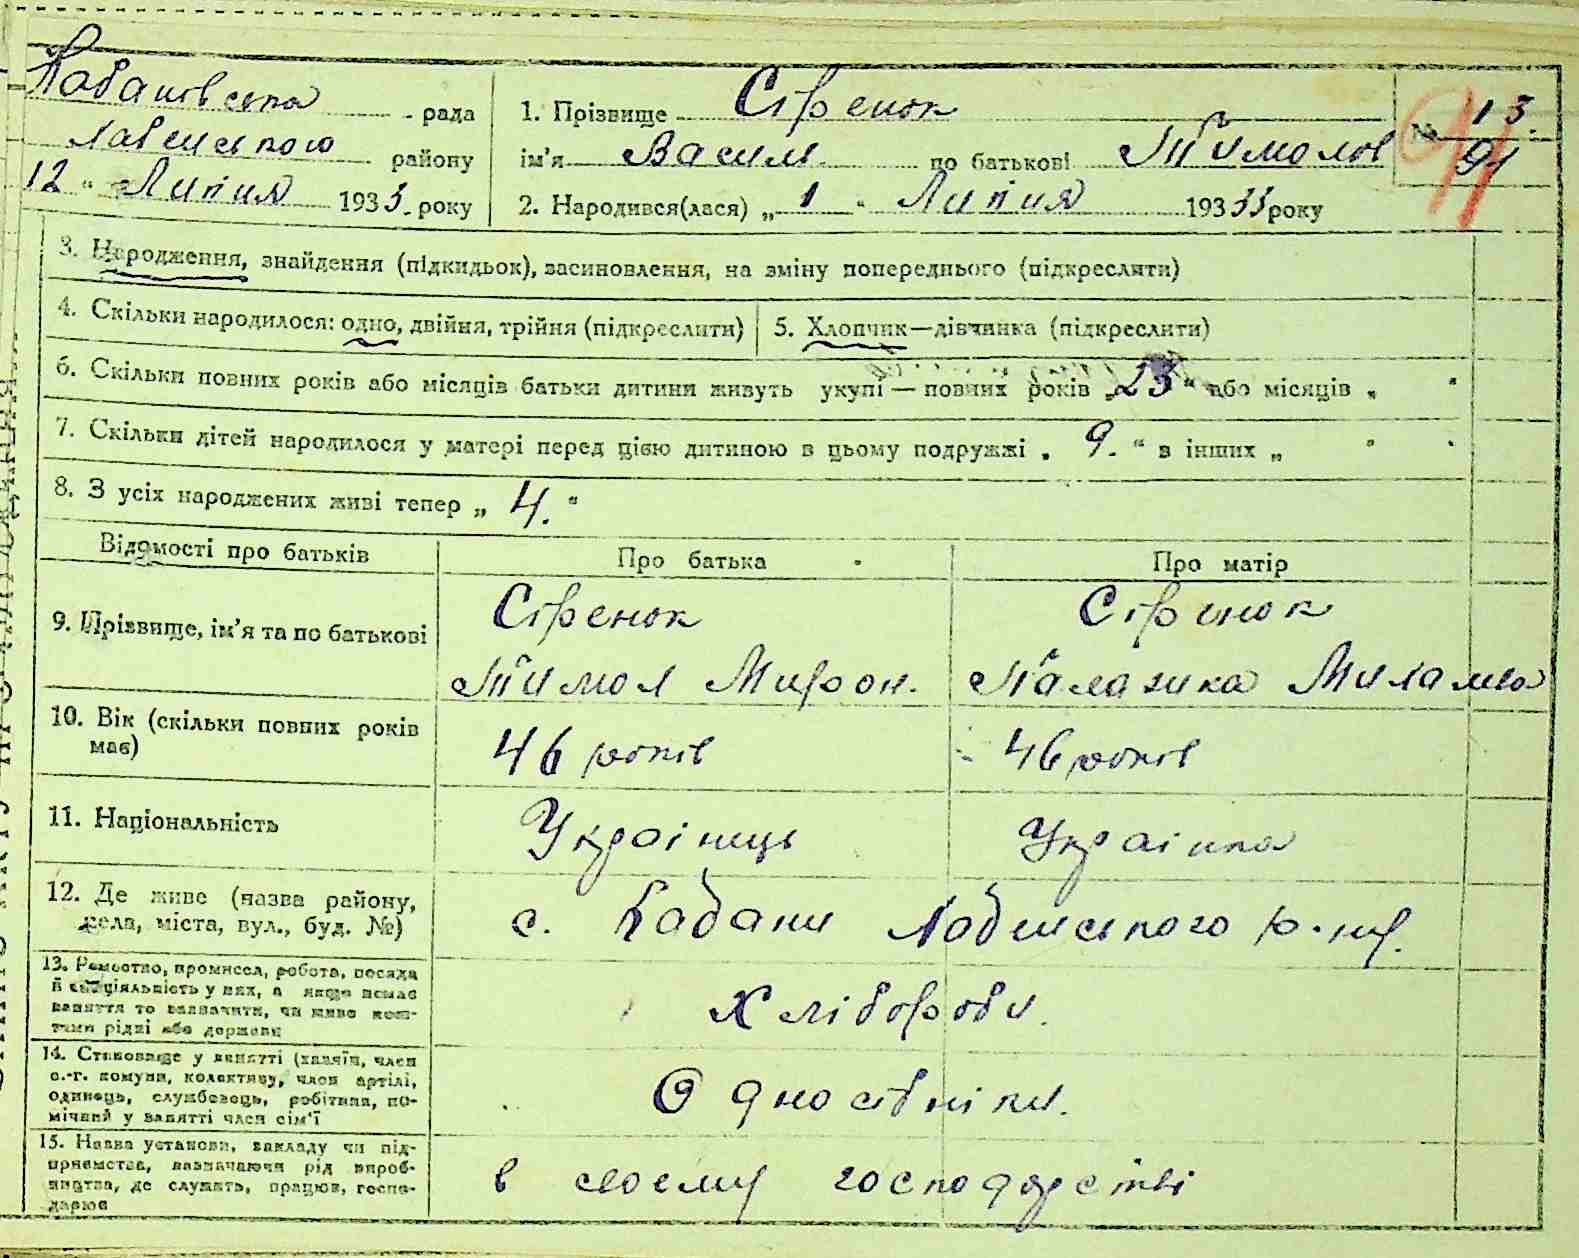 Кабанівська рада
Лавенського району
12 " Липня 1933. року
1. Прізвище Стренок
ім'я Василь по батькові Тимолов
2. Народився(лася) „ 1 " Липня 19333 року
№ 13.
91
91
3. Народження, знайдення (підкидьок), засиновлення, на зміну попереднього (підкреслити)
4. Скільки народилося: одно, двійня, трійня (підкреслити)
5. Хлопчик—дівчинка (підкреслити)
6. Скільки повних років або місяців батьки дитини живуть укупі — повних років „23" або місяців „ "
7. Скільки дітей народилося у матері перед цією дитиною в цьому подружжі „ 9. " в інших „ "
8. З усіх народжених живі тепер „ 4. "
Відомості про батьків
Про батька
Про матір
9. Прізвище, ім'я та по батькові
Стренок
Тимол Мирон.
Стренок
Палажка
10. Вік (скільки повних років
має)
46 років
46 років
11. Національність
Українець
Українка
12. Де живе (назва району,
села, міста, вул., буд. №)
с. Кабани р-ну.
13. Ремество, промисел, робота, посада
й спеціяльність у них, а якщо немає
заняття то зазначити, чи живе кош-
тами рідні або держави
Хлібороби.
14. Становище у занятті (хазяїн, член
с.-г. комуни, колективу, член артілі,
одинець, службовець, робітник, по-
мічний у занятті член сім'ї
Одноосібники.
15. Назва установи, закладу чи під-
приємства, зазначаючи рід вироб-
ництва, де служить, працює, госпо-
дарює
в своему господарстві